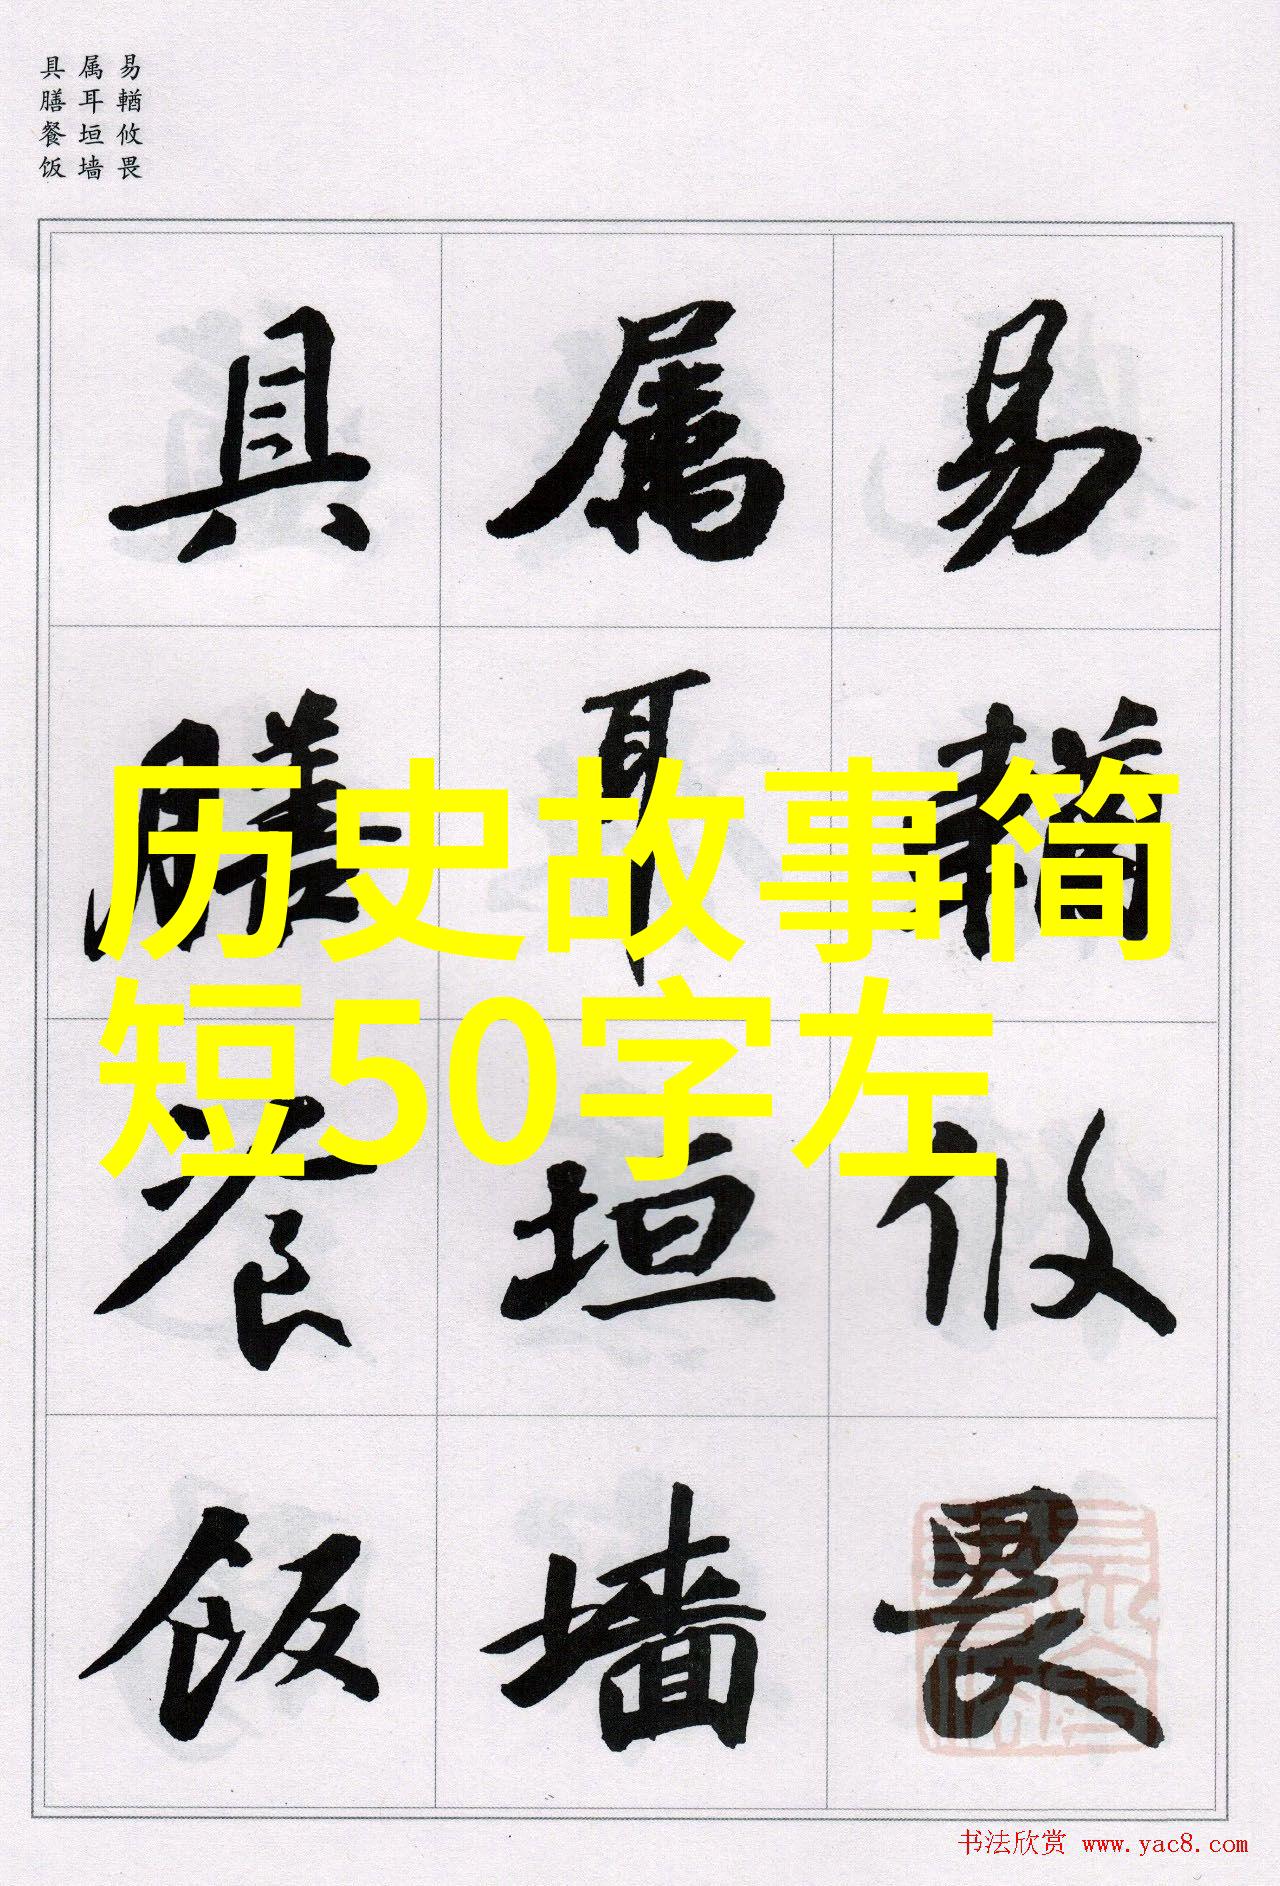 易輶攸畏
属耳垣墙
具膳餐饭
易輶攸畏
属耳垣墙
具膳餐饭
历史故事简
短50字左
书法欣赏 www.yac8.com